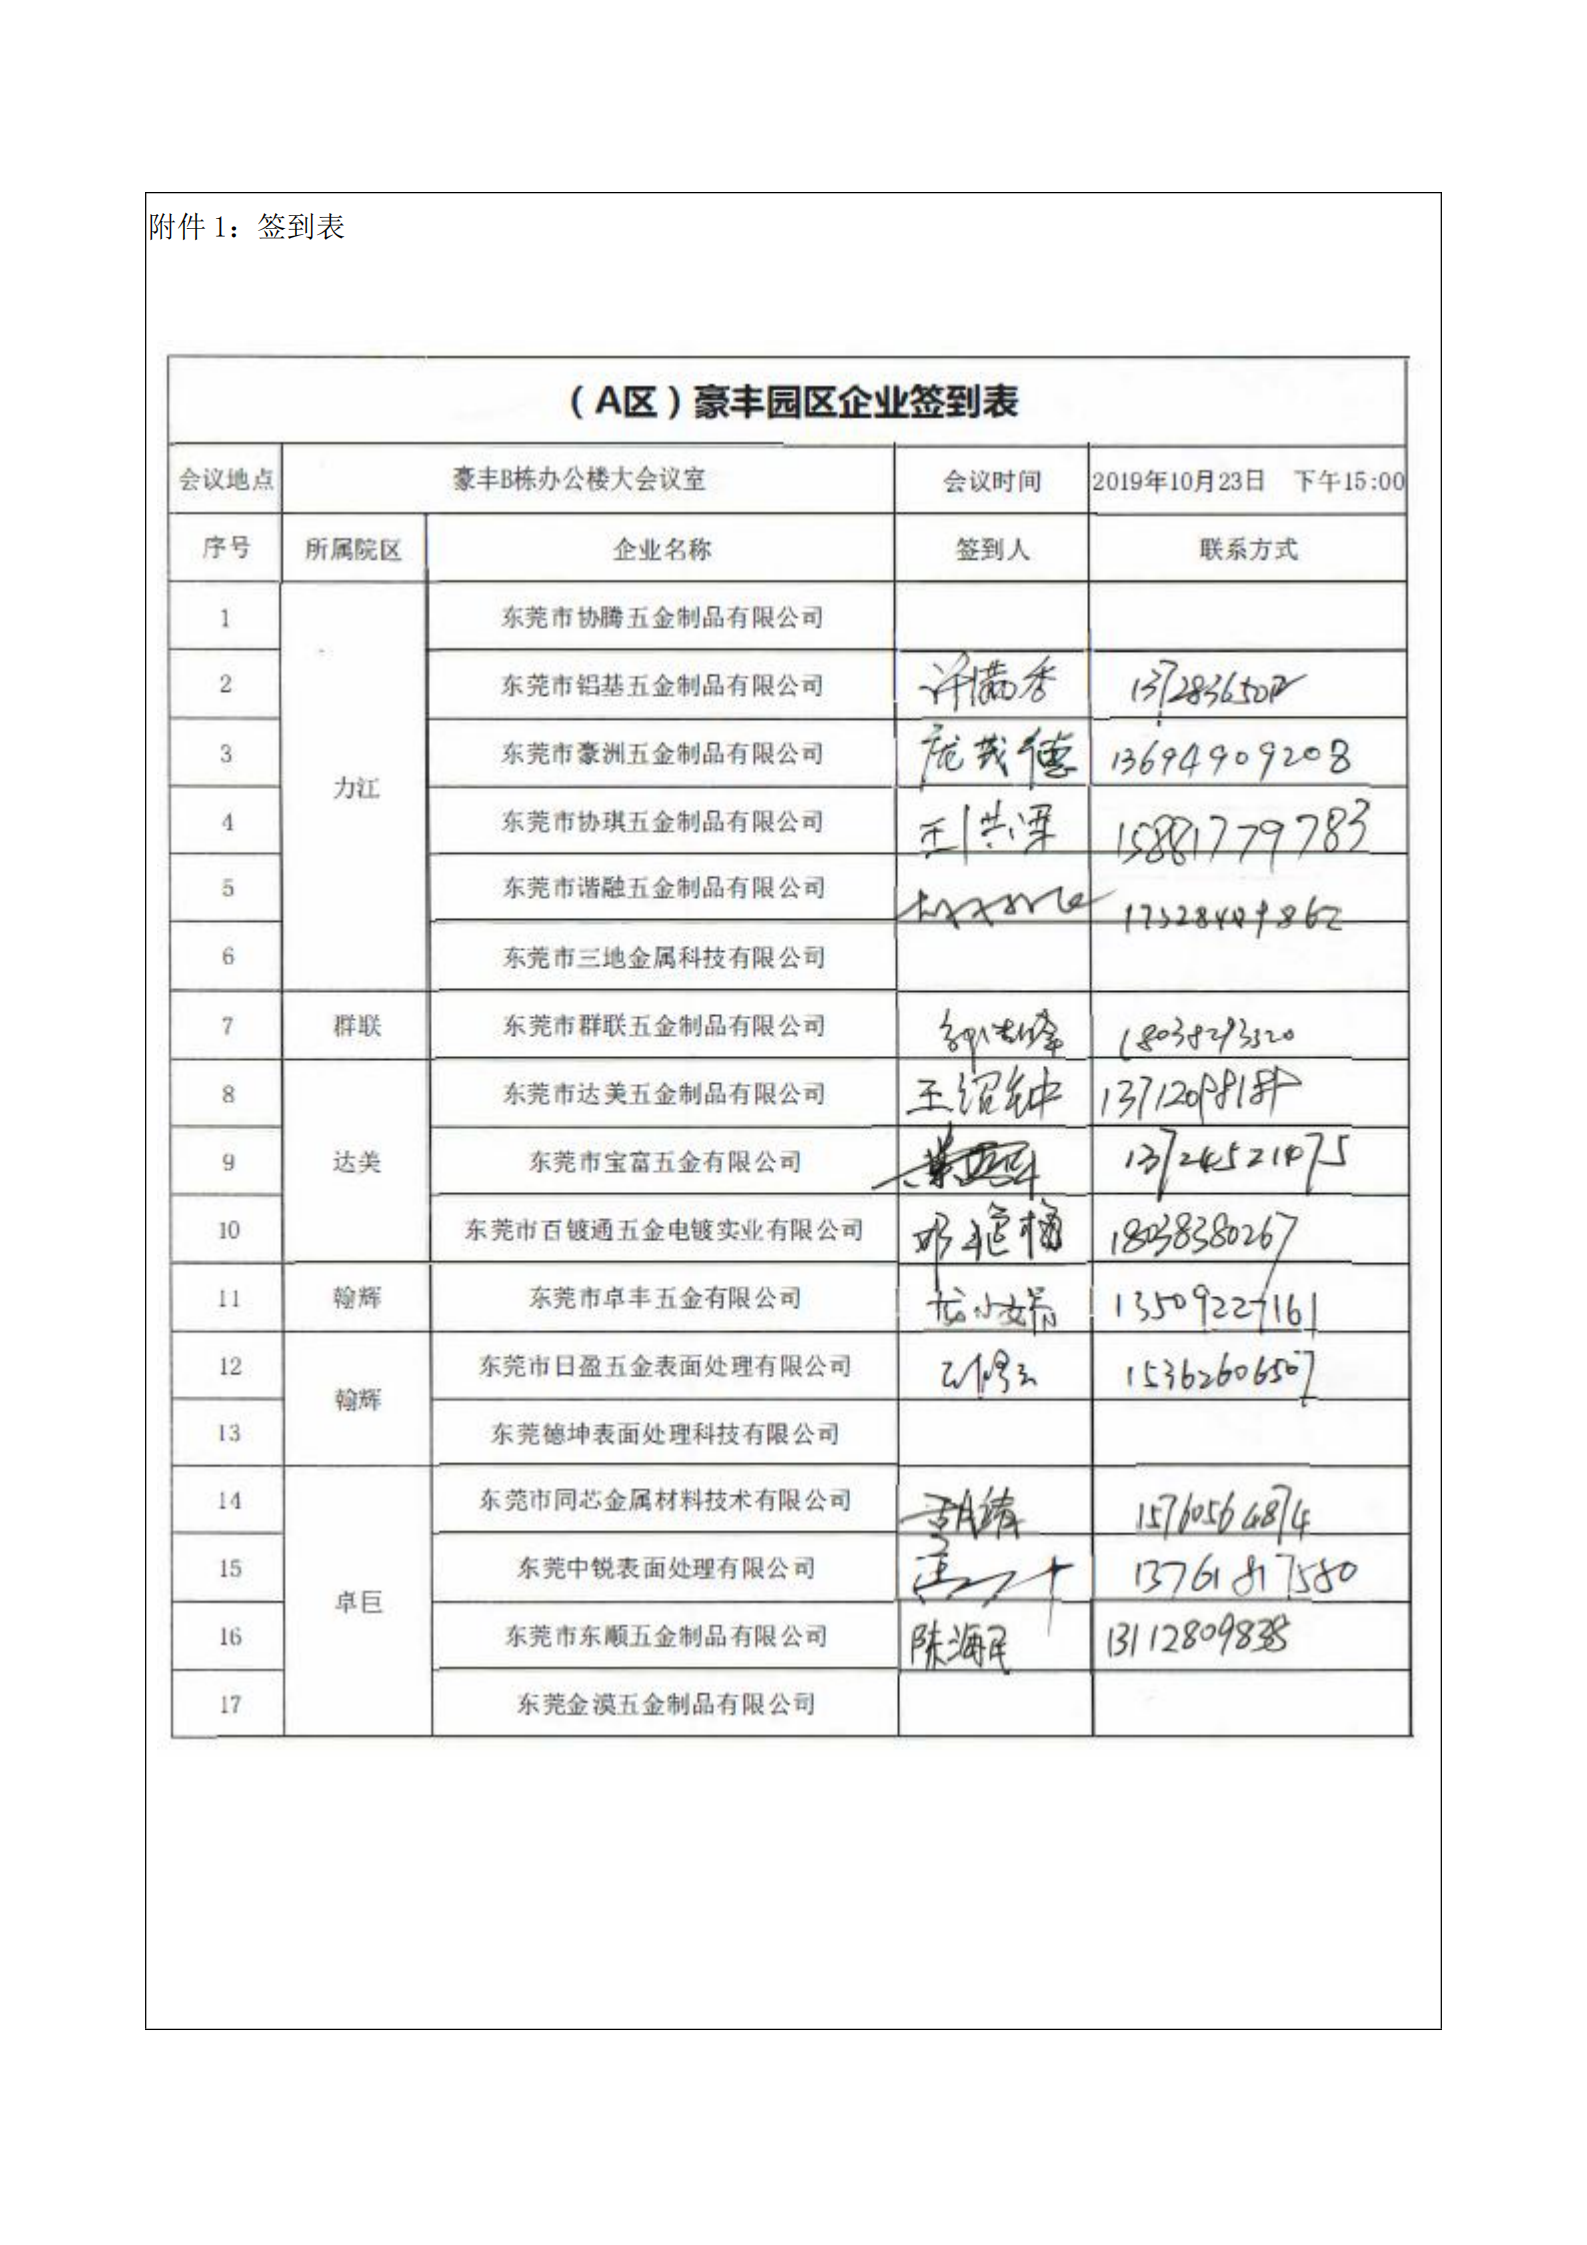 附件 1：签到表
（A区）豪丰园区企业签到表
会议地点 豪丰B栋办公楼大会议室 会议时间 2019年10月23日 下午15:00
序号 所属院区 企业名称 签到人 联系方式
1 东莞市协腾五金制品有限公司
2 东莞市铝基五金制品有限公司 许满香
3 东莞市豪洲五金制品有限公司 13694909208
力江
4 东莞市协琪五金制品有限公司 15881779783
5 东莞市谐融五金制品有限公司
6 东莞市三地金属科技有限公司
7 群联 东莞市群联五金制品有限公司 18038293320
8 东莞市达美五金制品有限公司 王绍钟
9 达美 东莞市宝富五金有限公司
10 东莞市百镀通五金电镀实业有限公司 18038380267
11 翰辉 东莞市卓丰五金有限公司 13509227161
12 东莞市日盈五金表面处理有限公司 15362606507
翰辉
13 东莞德坤表面处理科技有限公司
14 东莞市同芯金属材料技术有限公司 胡靖 15760564874
15 东莞中锐表面处理有限公司
卓巨
16 东莞市东顺五金制品有限公司 陈海民 13112809838
17 东莞金漠五金制品有限公司